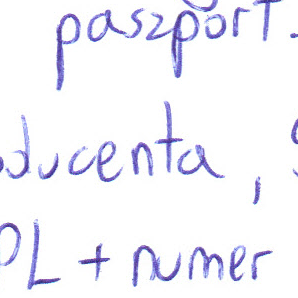 paszport.
oducenta,
PL + numer